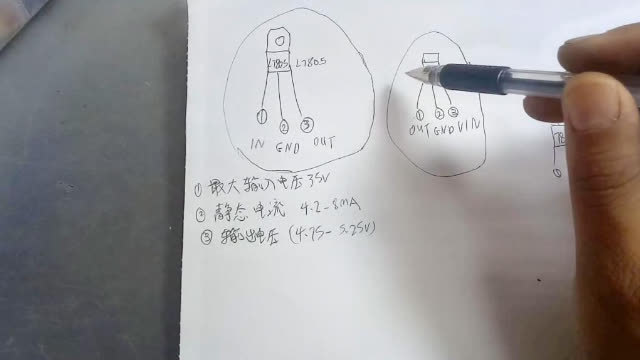 L7805 L7805
① ② ③
IN GND OUT
① ② ③
OUT GND VIN
① 最大输入电压35V
② 静态电流 4.2-8mA
③ 输出电压 (4.75-5.25V)